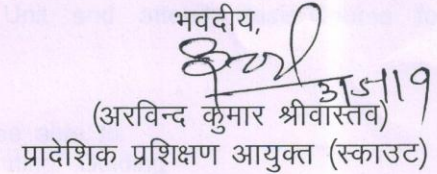 भवदीय,
31/5/19
(अरविन्द कुमार श्रीवास्तव)
प्रादेशिक प्रशिक्षण आयुक्त (स्काउट)